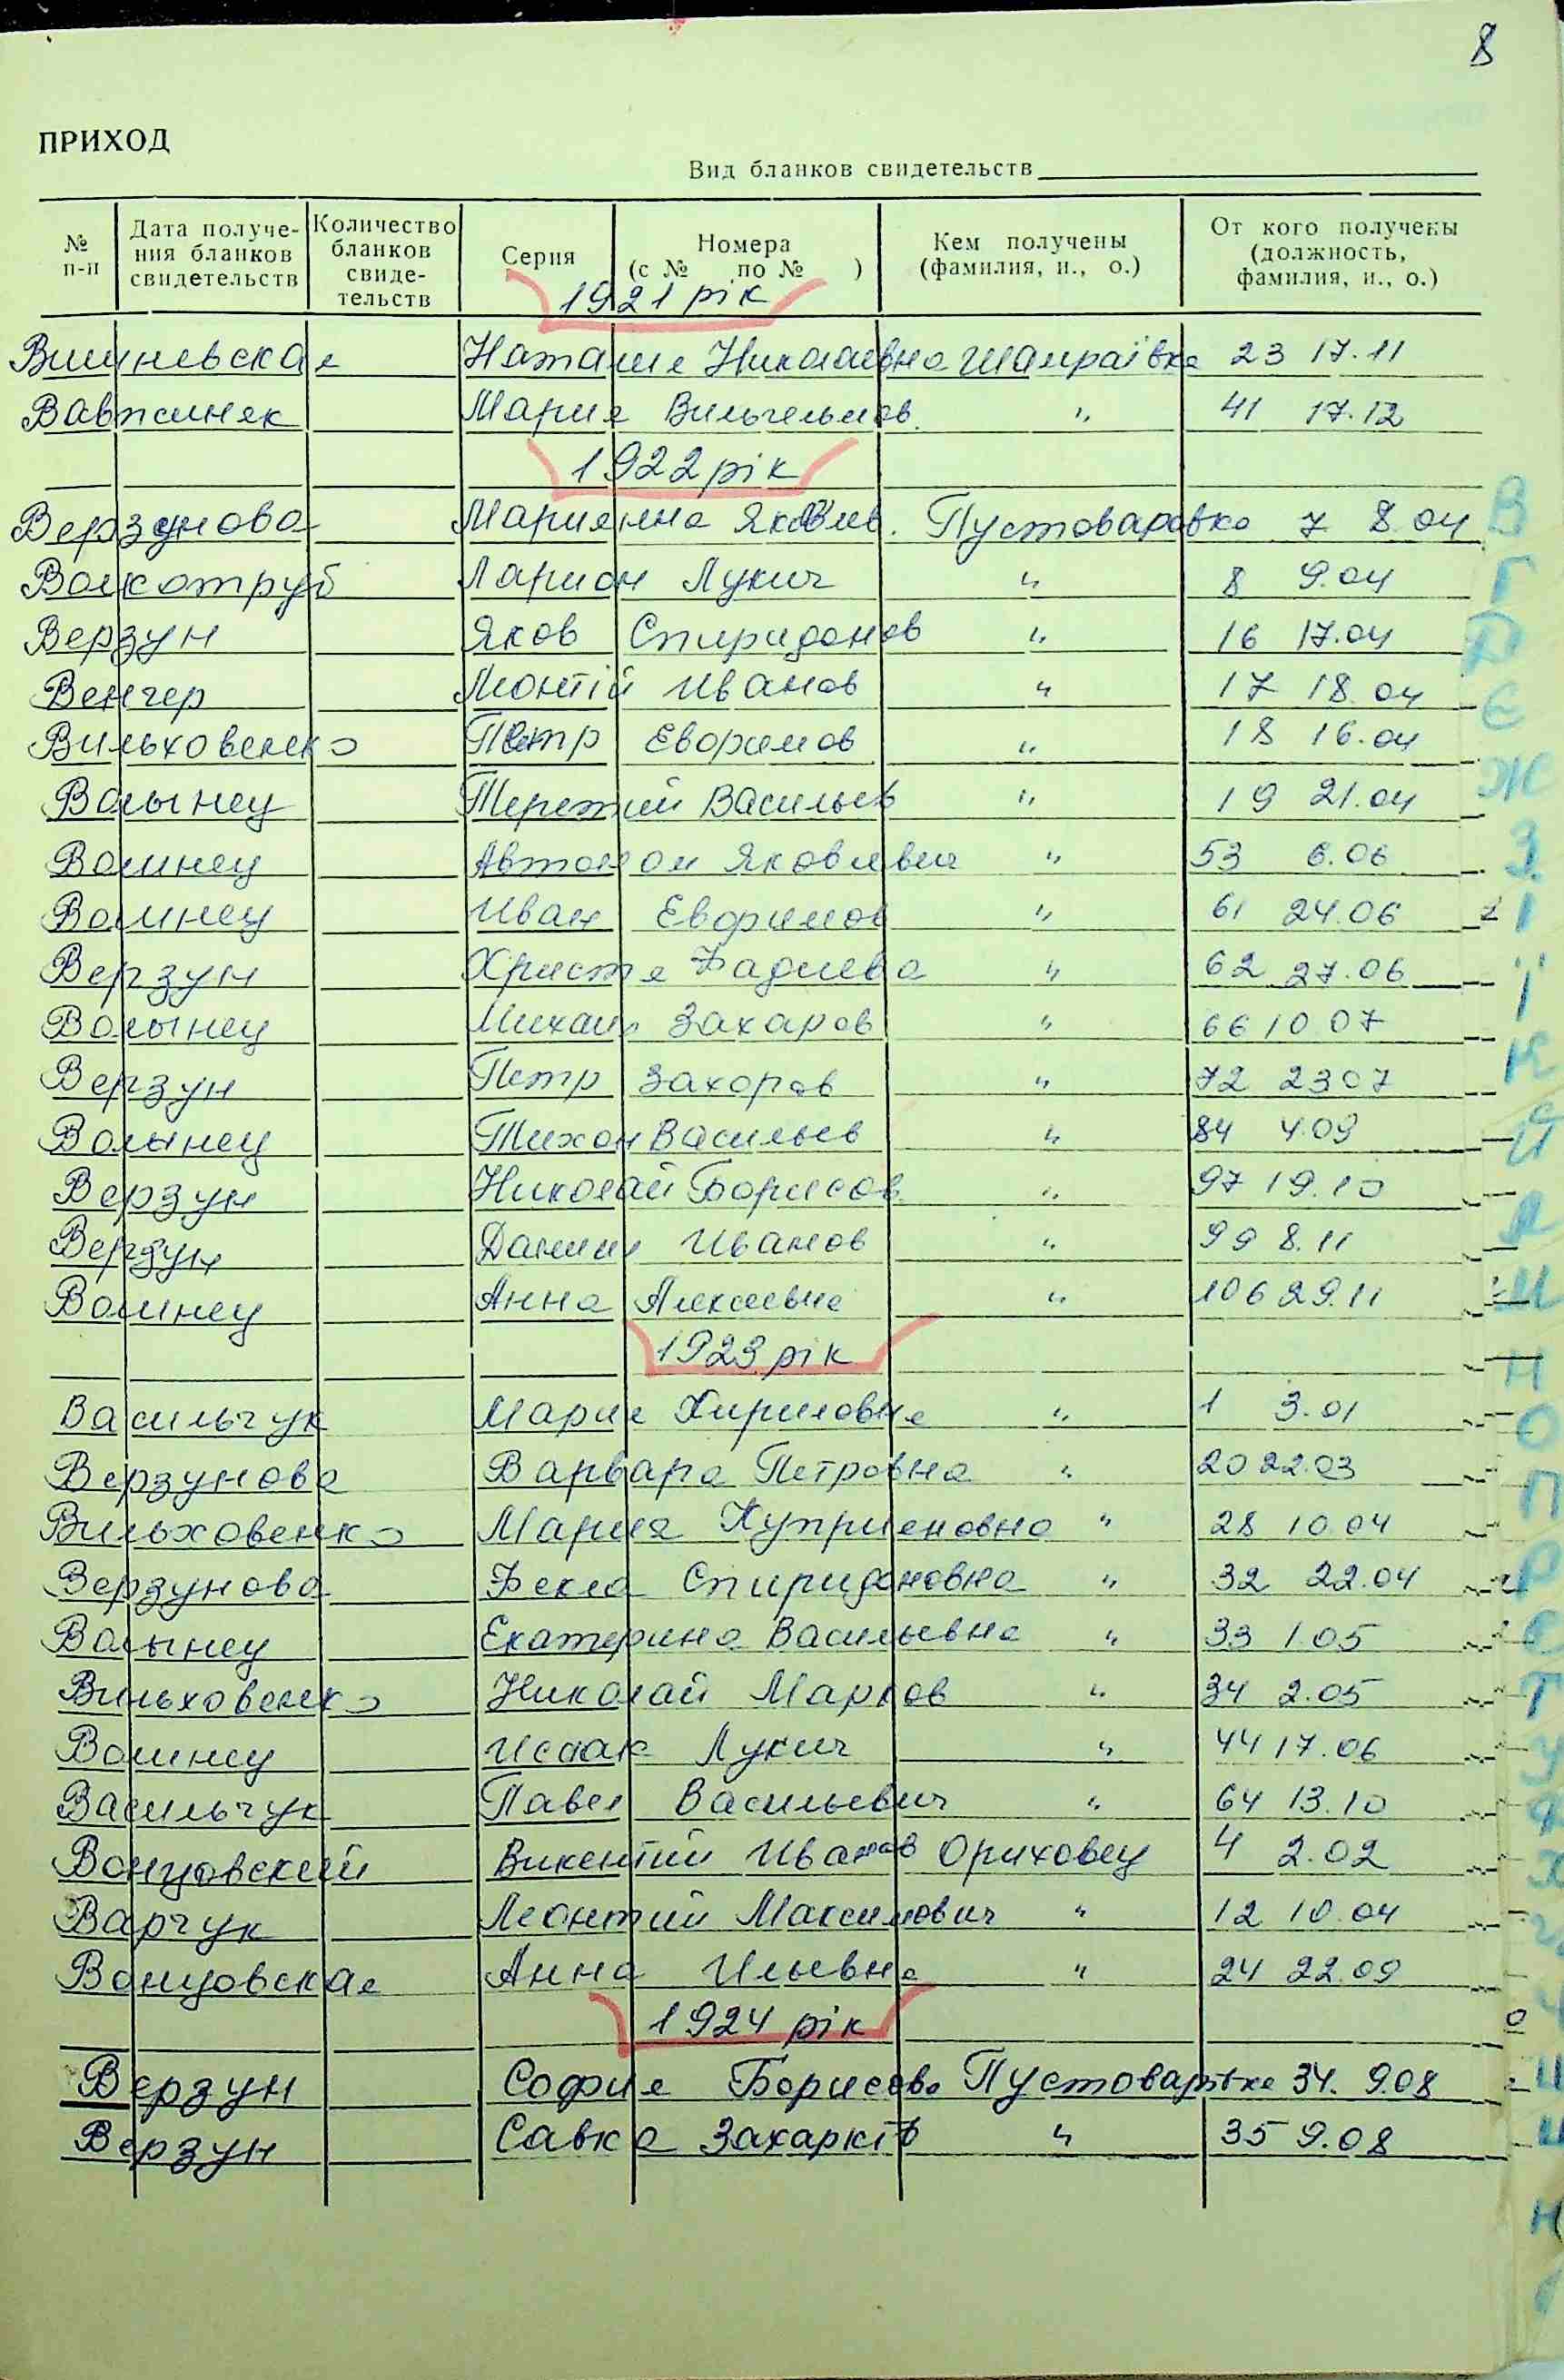 8
ПРИХОД
Вид бланков свидетельств
№ п-п Дата получе-ния бланков свидетельств Количество бланков свиде-тельств Серия Номера (с № по № ) Кем получены (фамилия, и., о.) От кого получены (должность, фамилия, и., о.)
1921 рік
Вишневская Наталия Николаевна Шамраївка 23 17.11
Вавжиняк Мария Вильгельмов. " 41 17.12
1922 рік
Верзунова Марияна Яковлев. Пустоваровка 7 8.04
Волкотруб Ларион Лукич " 8 9.04
Верзун Яков Спиридонов " 16 17.04
Венгер Леонтій Иванов " 17 18.04
Вильховенко Петр Евфимов " 18 16.04
Волынец Терентий Васильев " 19 21.04
Волинец Автоном Яковлевич " 53 6.06
Волинец Иван Евфимов " 61 24.06
Верзун Христя Фадиева " 62 27.06
Волынец Михаил Захаров " 66 10.07
Верзун Петр Захаров " 72 23 07
Волынец Тихон Васильев " 84 4.09
Верзун Николай Борисов " 97 19.10
Верзун Даниил Иванов " 99 8.11
Волинец Анна Алексеевна " 106 29.11
1923 рік
Васильчук Мария Кириловня " 1 3.01
Верзунова Варвара Петровна " 20 22.03
Вильховенко Мария Куприяновна " 28 10.04
Верзунова Фекла Спиридоновна " 32 22.04
Волынец Екатерина Васильевна " 33 1.05
Вильховенко Николай Марков " 34 2.05
Волинец Исаак Лукич " 44 17.06
Васильчук Павел Васильевич " 64 13.10
Вонцовский Викентий Иванов Ориховец 4 2.02
Варчук Леонтий Максимович " 12 10.04
Вонцовская Анна Ильевна " 24 22.09
1924 рік
Верзун София Борисова Пустоварівка 34. 9.08
Верзун Савка Захарків " 35 9.08